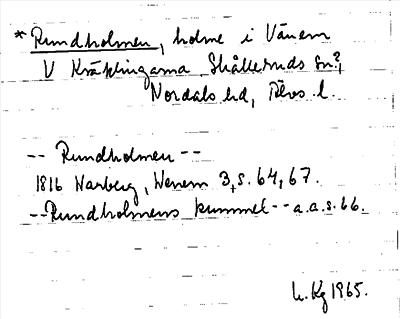 *Rundholmen, holme i Vänern
V Kräklingarna Skålleruds sn?,
Nordals hd, Älvs l.
-- Rundholmen --
1816 Warberg, Wenern 3, s. 64, 67.
--Rundholmens kummel -- a.a.s. 66.
Kg 1965.